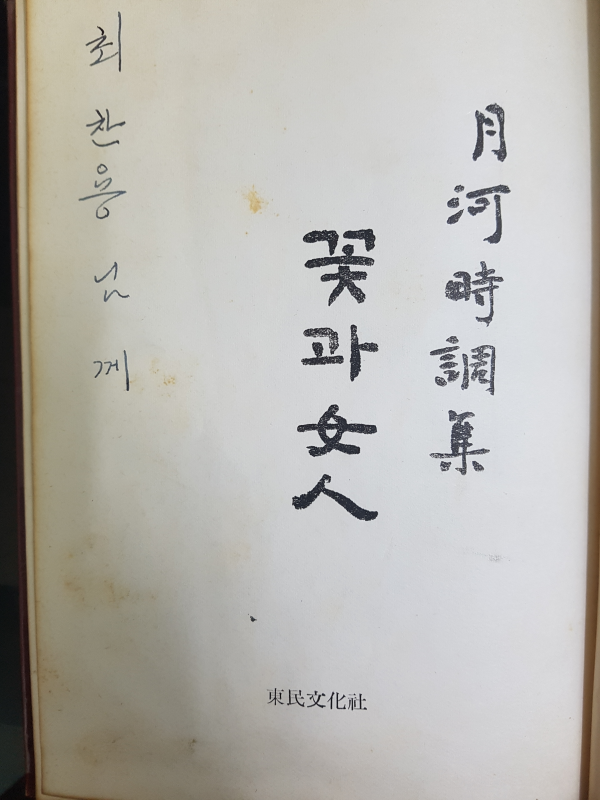 月河時調集
꽃과 女人
최찬용님께
東民文化社